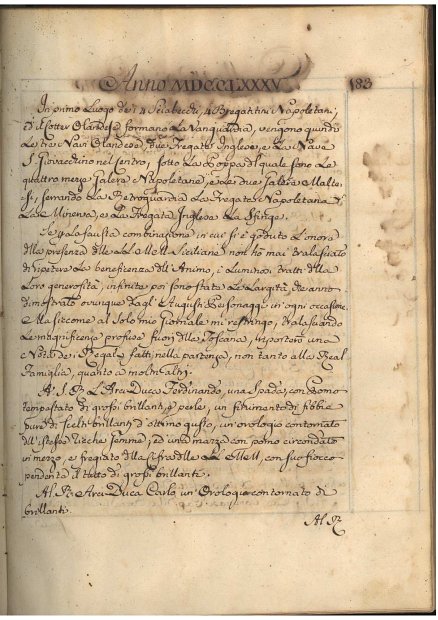 Anno MDCCLXXXV.
183
In primo Luogo dei 4 Sciabecchi, 4 Bregattini Napoletani,
ed il Cotter Olandese formano La Vanguardia, vengono quindi
Le tre Navi Olandesi, due Fregate Inglesi, e La Nave
S. Giovacchino nel Centro, sotto La Poppa del quale sono La
quattro mezze Galere Napoletane, e Le due Galere Malte,
si, serrando La Retroguardia La Fregata Napoletana
La Minerva, e La Fregata Inglese La Sfinge.
Se nella fausta combinazione in cui si è goduto L'onore
della presenza delle LL. Mell. Siciliane non ho mai tralasciato
di ripetere La beneficenza dell'Animo, i Luminosi tratti della
Loro generosità, infinite poi sono state Le Largità che anno
dimostrato ovunque dagl'Augusti Personaggi in ogni occasione.
Ma siccome al Solo mio Giornale mi restringo, tralasciando
Le magnificenze profuse fuori della Toscana, riporterò una
Nota de' Regali fatti nella partenza, non tanto alla Real
Famiglia, quanto a molti altri.
A S. R. L'Arci Duca Ferdinando, una Spada, con Pomo
tempestato di grossi brillanti, e perle, un finimento di fibbie
pure di scelti brillanti, d'ottimo gusto, un'orologio contornato
dell'istesse ricche gemme, ed una mazza con pomo circondato
in mezzo, e fregiato della cifra delle LL. Mell, con suo fiocco
pendente il tutto di grossi brillanti.
Al R. Arci Duca Carlo un'Orologio contornato di
brillanti.
Al R.